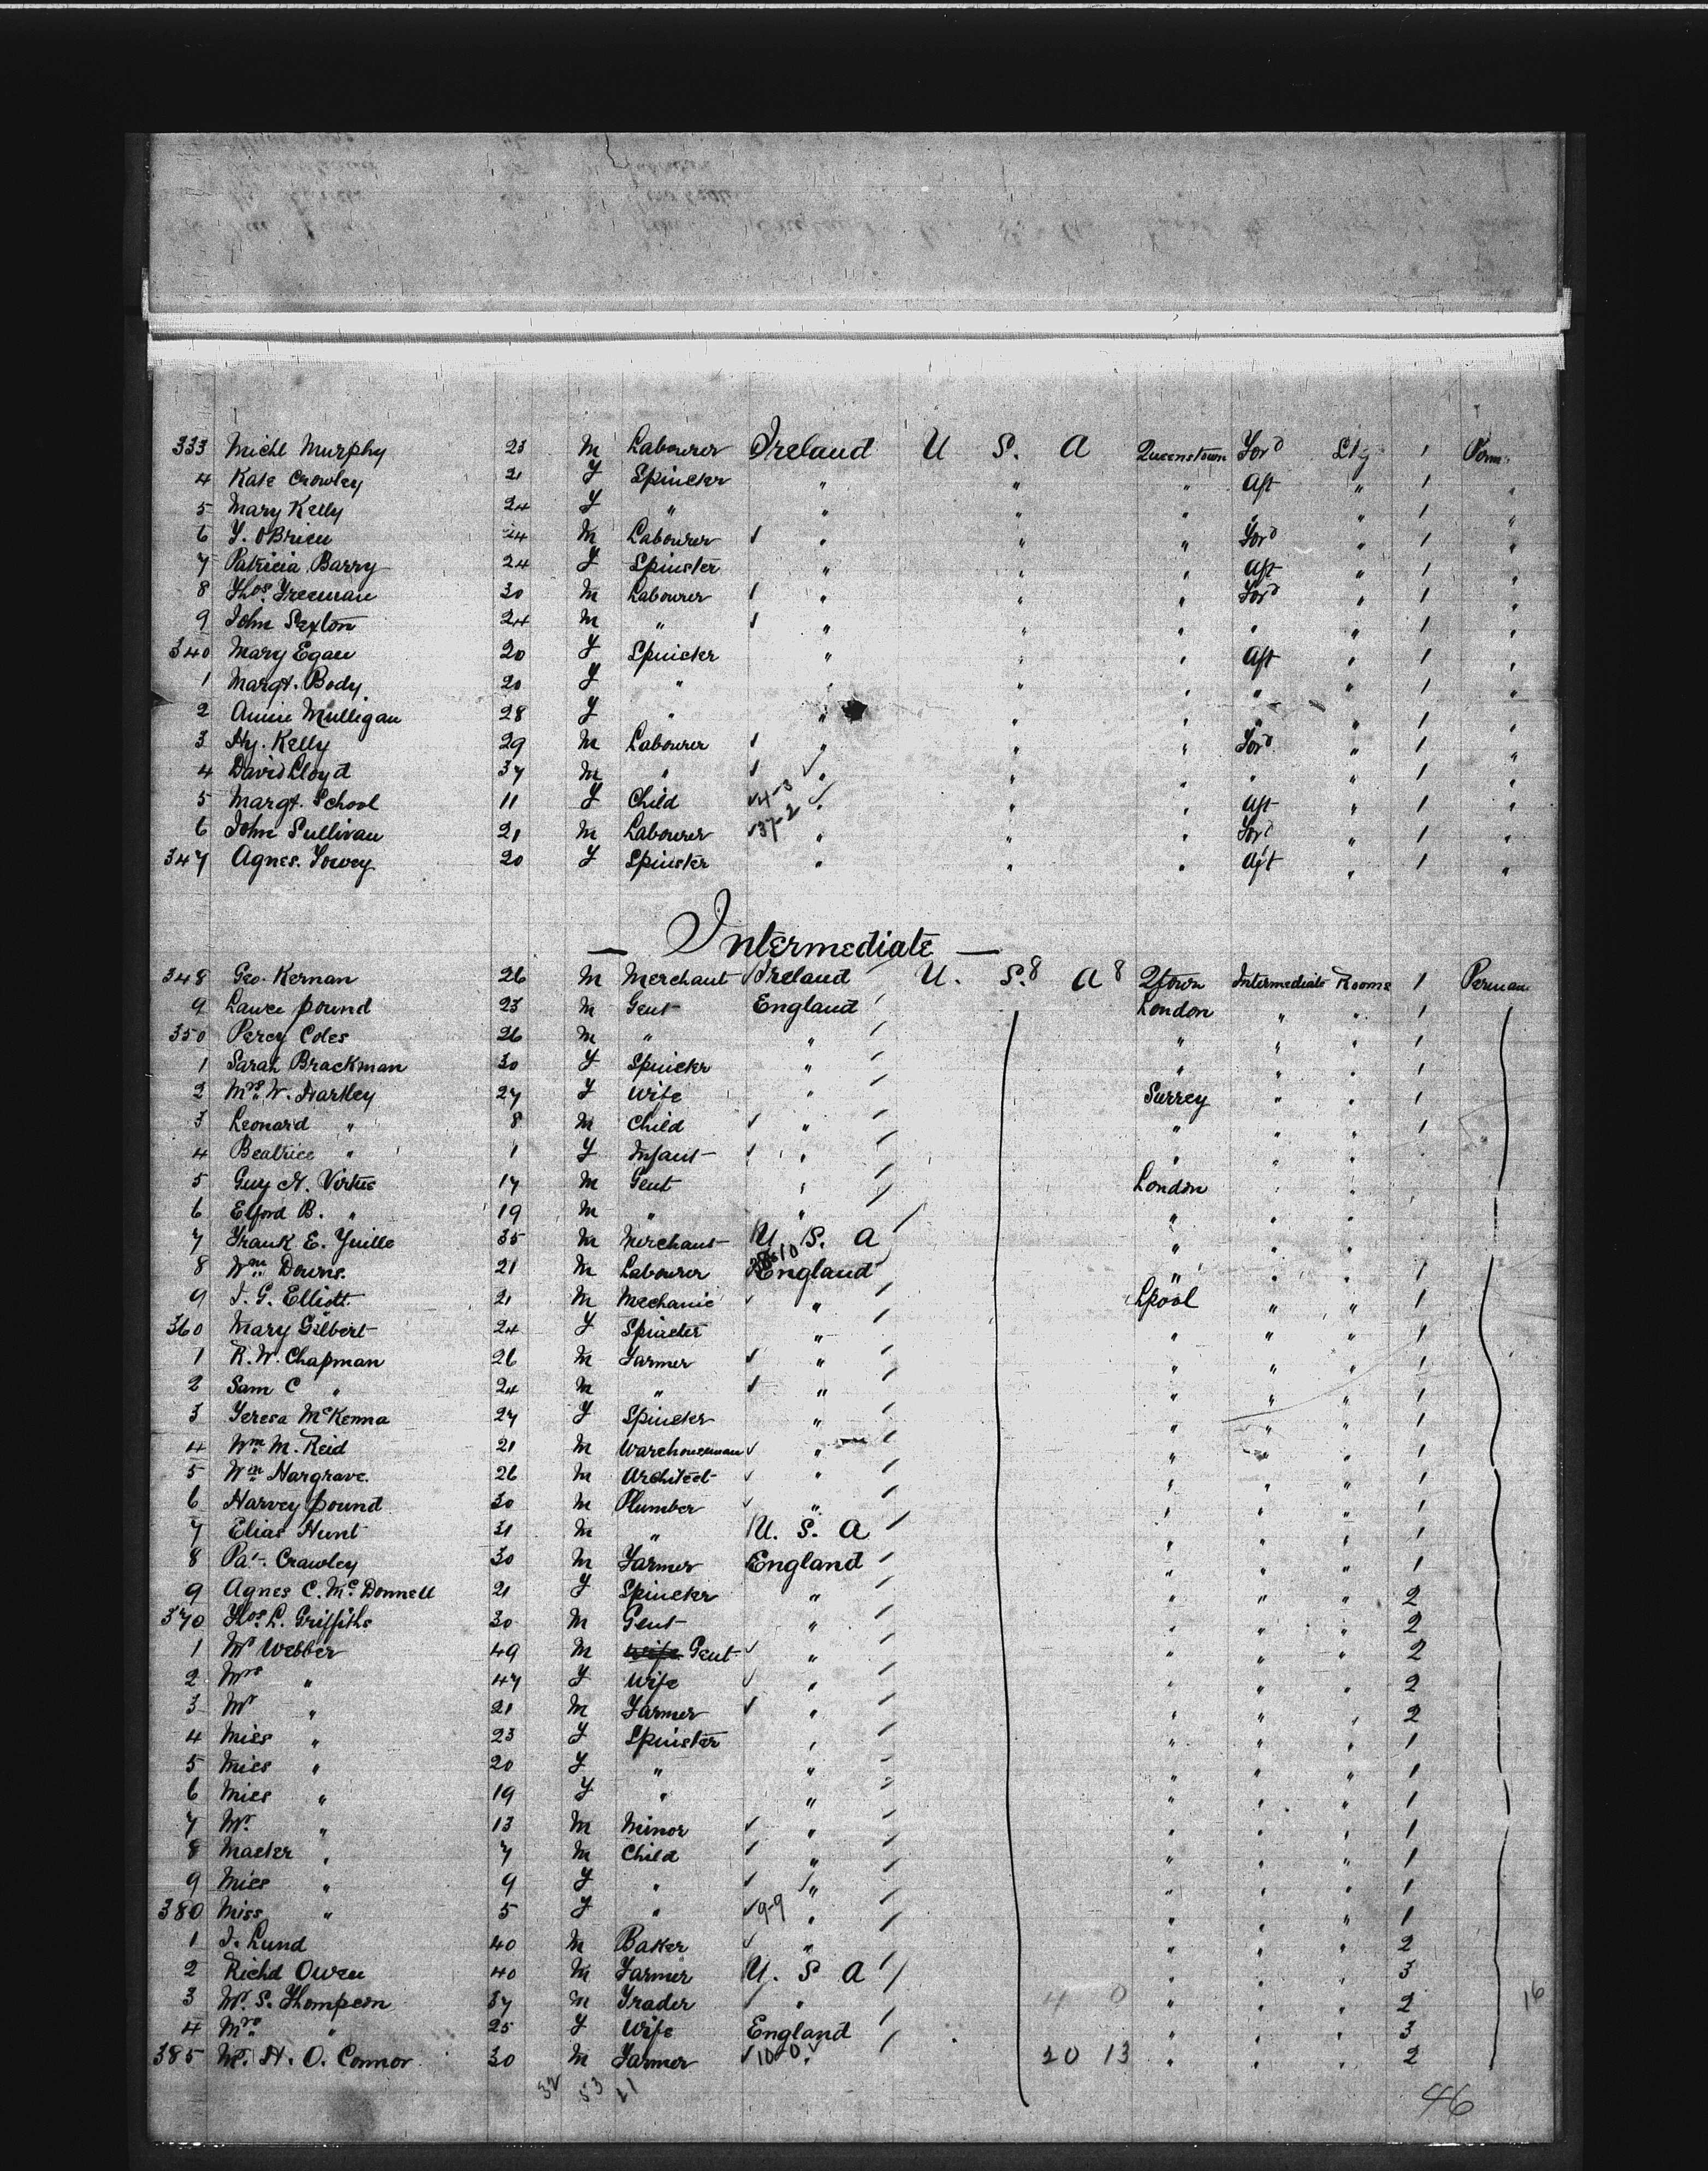 333 Michl Murphy 23 M Labourer Ireland U S. A Queenstown For^d Stg 1 Perm
4 Kate Crowley 21 F Spinster " " " Aft " 1 "
5 Mary Kelly 24 F " " " " " " 1 "
6 T. OBrien 24 M Labourer " " " For^d " 1 "
7 Patricia Barry 24 F Spinster " " " Aft " 1 "
8 Thos. Freeman 30 M Labourer " " " For^d " 1 "
9 John Sexton 24 M " " " " " " 1 "
340 Mary Egan 20 F Spinster " " " Aft " 1 "
1 Margt. Body 20 F " " " " " " 1 "
2 Annie Mulligan 28 F " " " " " " 1 "
3 Hy. Kelly 29 M Labourer " " " For^d " 1 "
4 David Lloyd 37 M " " " " " " 1 "
5 Margt. School 11 F Child 4-3 " " " Aft " 1 "
6 John Sullivan 21 M Labourer 37-2 " " " For^d " 1 "
347 Agnes. 20 F Spinster " " " Aft " 1 "
— Intermediate —
348 Geo. Kernan 26 M Merchant Ireland U. S.8 A8 Qtown Intermediate Rooms 1 Perman
9 Lawce pound 23 M Gent England London " " 1
350 Percy Coles 26 M " " " " " 1
1 Sarah Brackman 30 F Spinster " " " " 1
2 Mrs. W. Hartley 27 F Wife " Surrey " " 1
3 Leonard " 8 M Child " " " " 1
4 Beatrice " 1 F Infant " " " "
5 Guy N. Virtue 17 M Gent " London " "
6 Elford B. " 19 M " " " " "
7 Frank E. Yuille 35 M Merchant U. S. A " " "
8 Wm. Downs. 21 M Labourer England " " " 1
9 J. G. Elliott. 21 M Mechanic " Lpool " " 1
360 Mary Gilbert 24 F Spinster " " " " 1
1 R. W. Chapman 26 M Farmer " " " " 1
2 Sam C " 24 M " " " " " 1
3 Teresa McKenna 27 F Spinster " " " " 1
4 Wm. M. Reid 21 M Warehouseman " " " " 1
5 Wm. Hargrave. 26 M Architect " " " " 1
6 Harvey pound 30 M Plumber " " " " 1
7 Elias Hunt 31 M " U. S. A " " " 1
8 Pat. Crawley 30 M Farmer England " " " 1
9 Agnes C. Mc.Donnell 21 F Spinster " " " " 2
370 Thos. L. Griffiths 30 M Gent " " " " 2
1 Mr Webber 49 M wife Gent " " " " 2
2 Mrs " 47 F Wife " " " " 2
3 Mr " 21 M Farmer " " " " 2
4 Miss " 23 F Spinster " " " " 1
5 Miss " 20 F " " " " " 1
6 Miss " 19 F " " " " " 1
7 Mr. " 13 M Minor " " " " 1
8 Master " 7 M Child " " " " 1
9 Miss " 9 F " " " " " 1
380 Miss " 5 F " 9-9 " " " " 1
1 J. Lund 40 M Baker " " " " 2
2 Richd Owen 40 M Farmer U. S A " " " 3
3 Mr. S. Thompson 37 M Trader " 4 0 " " " 2 16
4 Mrs. " 25 F Wife England " " " 3
385 Mr. H. O. Connor 30 M Farmer 10-0 " 20 13 " " " 2
32 53 21 46